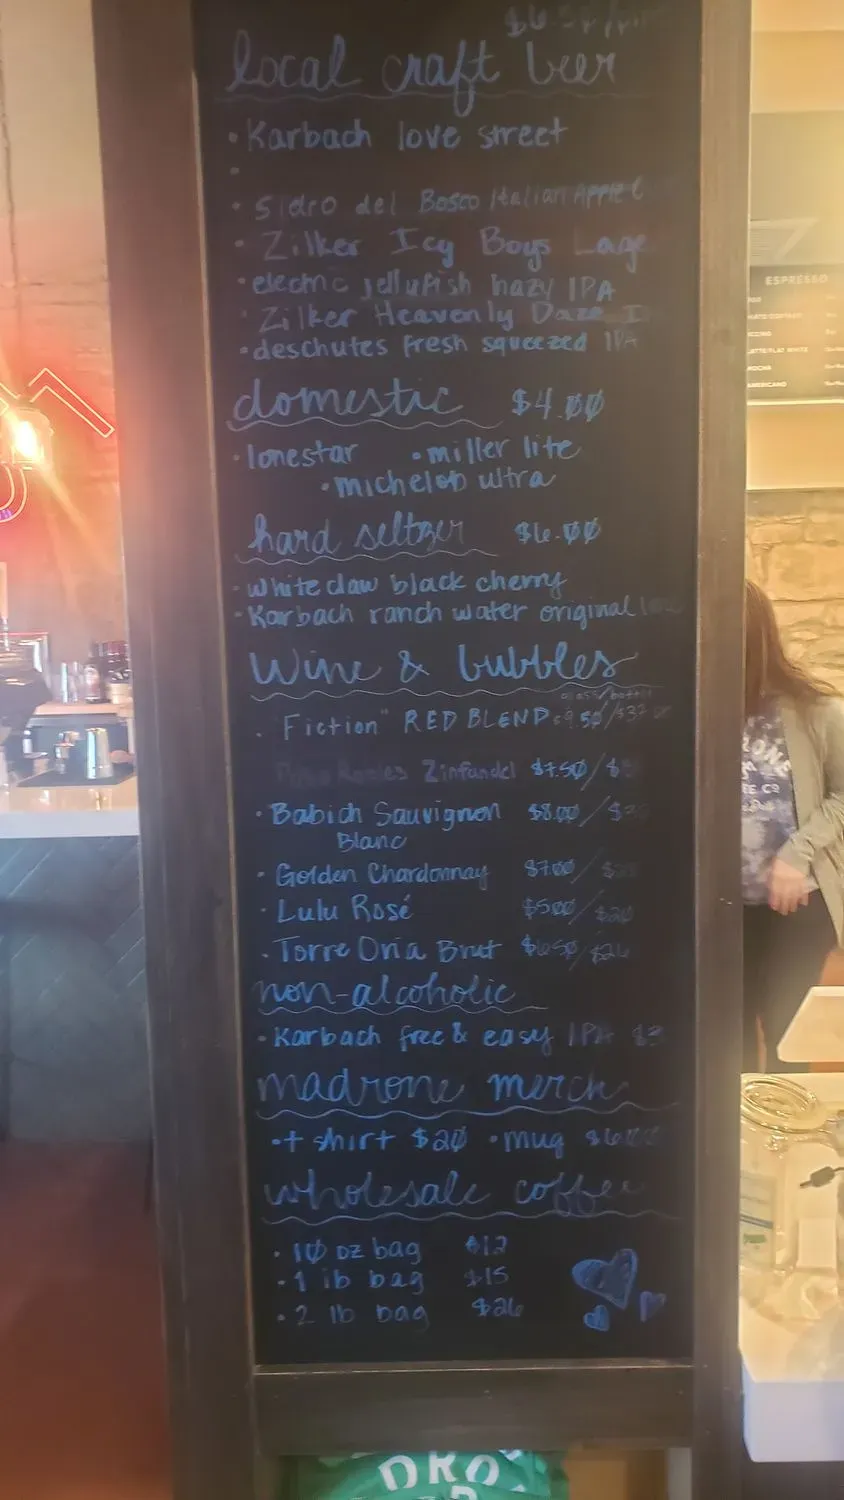 local craft beer
• Karbach love street
•
• Sidro del Bosco Italian Apple
• Zilker Icy Boys Lage
• electric jellyfish hazy IPA
• Zilker Heavenly Daze I
• deschutes fresh squeezed IPA
domestic $4.00
• lonestar • miller lite
• michelob ultra
hard seltzer $6.00
• white claw black cherry
• Karbach ranch water original
Wine & bubbles
glass/bottle
• "Fiction" RED BLEND $9.50/$32
Robles Zinfandel $7.50/$
• Babich Sauvignon $8.00/$
Blanc
• Golden Chardonnay $7.00/
• Lulu Rosé $5.00/$20
• Torre Oria Brut $6.50/$26
non-alcoholic
• Karbach free & easy IPA
madrone merch
• t shirt $20 • mug $6.00
wholesale coffee
• 10 oz bag $12
• 1 lb bag $15
• 2 lb bag $26
ESPRESSO
LATTE/FLAT WHITE
MOCHA
AMERICANO
DRO